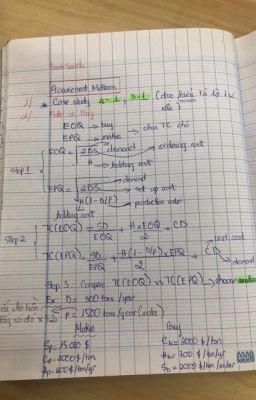 Procurement Methods
1/ * Case study 4-1, 3-1 (đọc hiểu
2/ Make or Buy
EOQ → buy
EPQ → make
→ chọn TC nhỏ
Step 1
EOQ = √2DS/H
demand
ordering cost
holding cost
EPQ = √2DS/H(1-D/P)
demand
set up cost
production rate
holding cost
Step 2
TC(EOQ) = SD/EOQ + H×EOQ/2 + CD
unit cost
TC(EPQ) = SD/EPQ + H(1-D/P)×EPQ/2 + CD
demand
Step 3: Compare TC(EOQ) vs TC(EPQ) → choose smaller
Ex: D = 500 tons/year
P = 1500 tons/year (make)
Make Buy
Sp = 15000 $ Cb = 3000 $/ton
Cp = 2000 $/ton Hb = 700 $/ton/yr
Hp = 400 $/ton/yr Sb = 2000 $/order